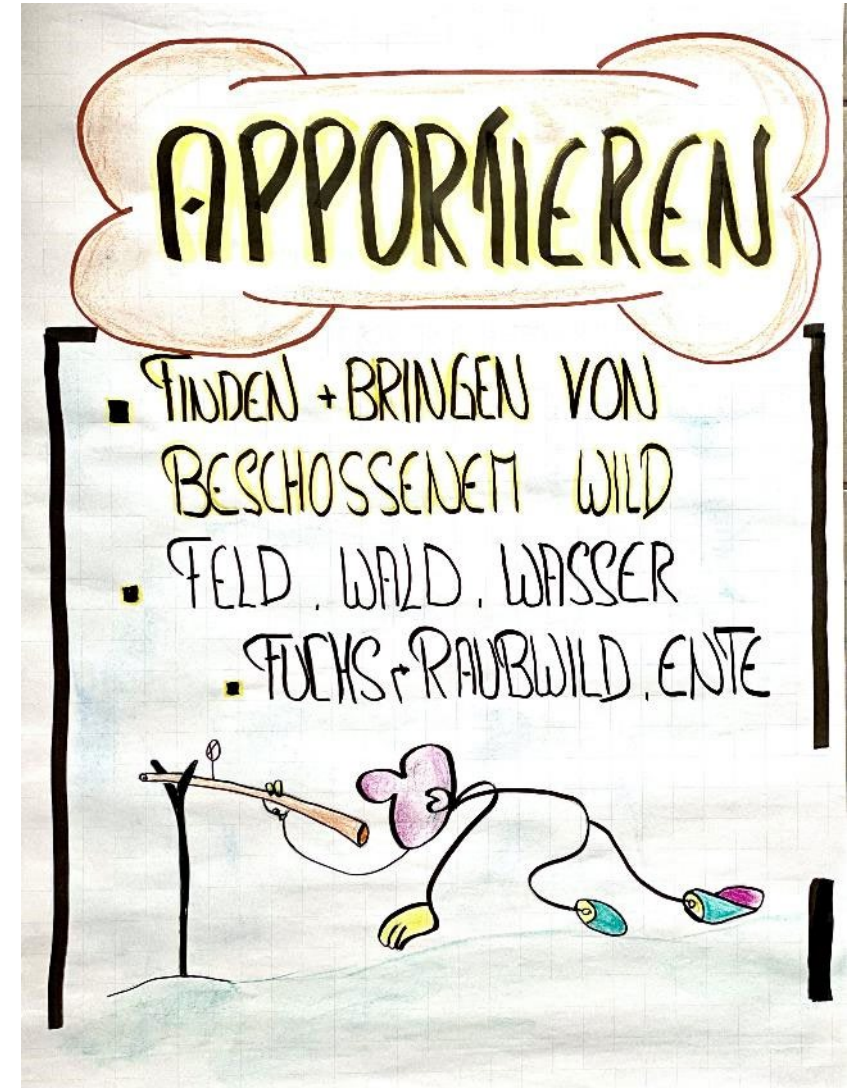 APPORTIEREN
▪ FINDEN + BRINGEN VON
BESCHOSSENEM WILD
▪ FELD, WALD, WASSER
▪ FUCHS + RAUBWILD, ENTE